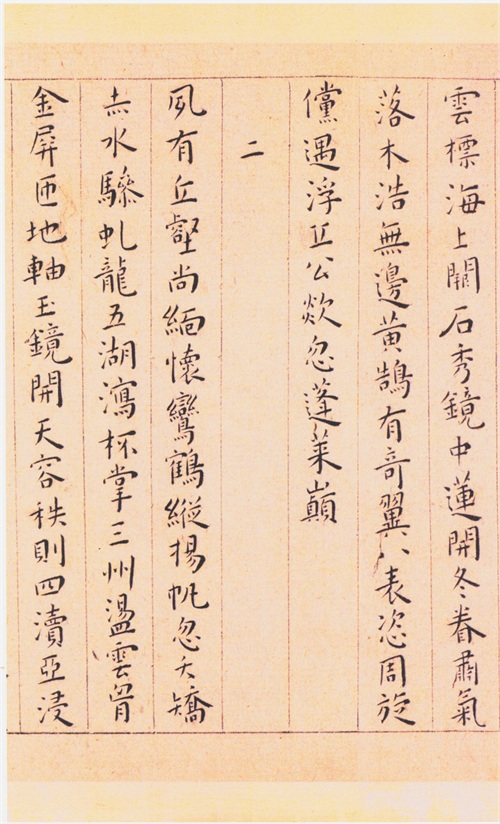 雲標海上闕石秀鏡中蓮開冬眷肅氣
落木浩無邊黃鵠有奇翼八表恣周旋
儻遇浮丘公欻忽蓬萊巔
二
夙有丘壑尚緬懷鸞鶴縱揚帆忽夭矯
赤水驂虬龍五湖瀉杯掌三州盪雲胷
金屏匝地軸玉鏡開天容秩則四瀆亞浸